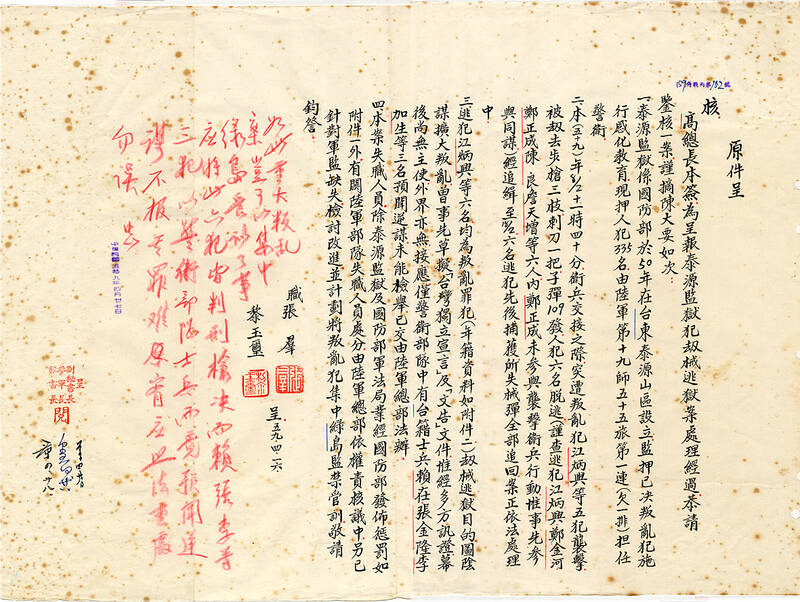 原件呈
核
高總長本簽為呈報泰源監獄犯劫械逃獄案處理經過恭請
鑒核一案謹摘陳大要如次:
一泰源監獄係國防部於50年在台東泰源山區設立監押已決叛亂犯施
行感化教育現押人犯335名由陸軍第十九師五十五旅第一連(欠一排)担任
警衛
二本(五九)年十一時四十分衛兵交接之際突遭叛亂犯江炳興等五犯襲擊
被劫去步槍三枝刺刀一把子彈109發人犯六名脫逃(謹查逃犯江炳興鄭金河
鄭正成陳良詹天增等六人內鄭正成未參與襲擊衛兵行動惟事先參
與同謀)經追緝至六名逃犯先後捕獲所失械彈全部追回案正依法處理
中
三逃犯江炳興等六名均為叛亂罪犯(年籍資料如附件二)劫械逃獄目的圖陰
謀擴大叛亂曾事先草擬「台灣獨立宣言」及「文告」文件惟經多方訊證幕
後尚無主使外界亦無接應僅警衛部隊中有台籍士兵賴在張金隆李
加生等三名預聞逆謀未能檢舉已交由陸軍總部法辦
四本案失職人員除泰源監獄及國防部軍法局業經國防部發佈懲罰如
附件一外有關陸軍部隊失職人員處分由陸軍總部依權責核議中另已
針對軍監缺失檢討改進並計劃將叛亂犯集中綠島監禁管訓敬請
鈞詧
職張羣
黎玉璽
呈五九四一六
如此重大叛乱
案豈可以集中
綠島管訓了事
应將此六犯皆判刑槍決而賴張李等
三犯以警衛部隊士兵而竟預聞逆
謀不报其罪难原宥应照法重處
勿誤
中華民國五拾九年四月廿七日
呈
副秘書長
參軍長
秘書長
閱